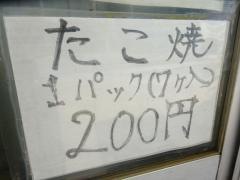 たこ焼
1パック(7ヶ入)
200円